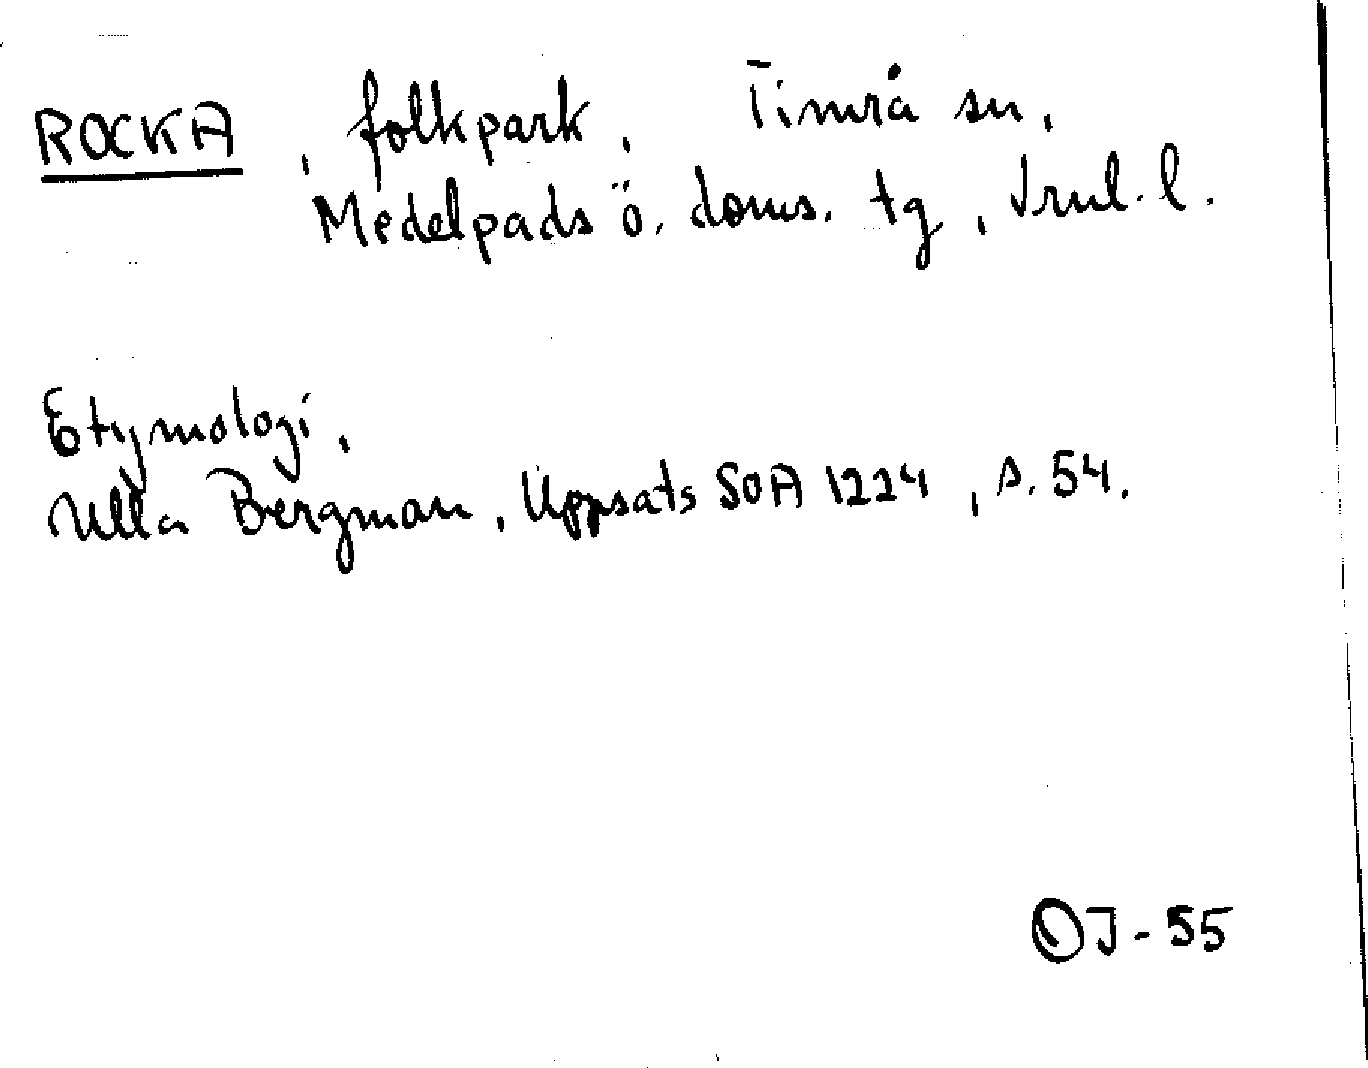 ROCKA, folkpark, Timrå sn,
Medelpads ö. doms. tg, Vnl. l.
Etymologi,
Ulla Bergman, Uppsats SOA 1224, s. 54.
OJ-55